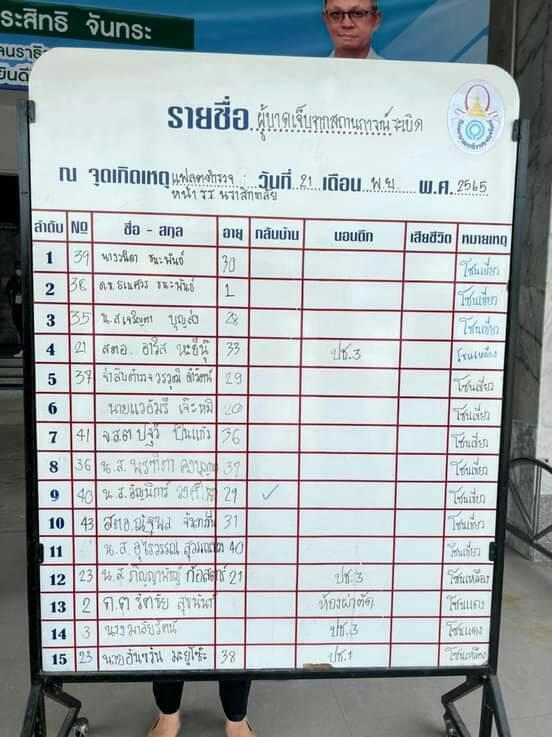 ระสิทธิ์ จันทระ
รายชื่อ ผู้บาดเจ็บจากสถานการณ์ระเบิด
ณ จุดเกิดเหตุ แฟลตตำรวจ วันที่ 21 เดือน พ.ย. พ.ศ. 2565
หน้า รร นราสิกขาลัย
ลำดับ No ชื่อ - สกุล อายุ กลับบ้าน นอนตึก เสียชีวิต หมายเหตุ
1 39 นางวนิดา ธนะพันธ์ 30 โซนเขียว
2 38 ด.ช. ธเนศวร ธนะพันธ์ 1 โซนเขียว
3 35 น.ส. บุญส่ง 28 โซนเขียว
4 21 สตอ. ฮาริส 33 ปช.3 โซนเหลือง
5 37 จ่าสิบตำรวจ วรวุฒิ 29 โซนเขียว
6 นาย เจ๊ะหมิ 20 โซนเขียว
7 41 จ.ส.ต ปฐวี ปิ่นแก้ว 36 โซนเขียว
8 36 น.ส. 37 โซนเขียว
9 40 น.ส. ธัญนิการ์ 29 ✓ โซนเขียว
10 43 สตอ. ณัฐพล 31 โซนเขียว
11 น.ส. อุไรวรรณ 40 โซนเขียว
12 23 น.ส. 21 ปช.3 โซนเหลือง
13 2 ด.ต รัตชัย สุขนันท์ ห้องผ่าตัด โซนแดง
14 3 นาง มาลัยรัตน์ ปช.3 โซนแดง
15 23 นาย มะยูโซ๊ะ 38 ปช.1 โซนเหลือง